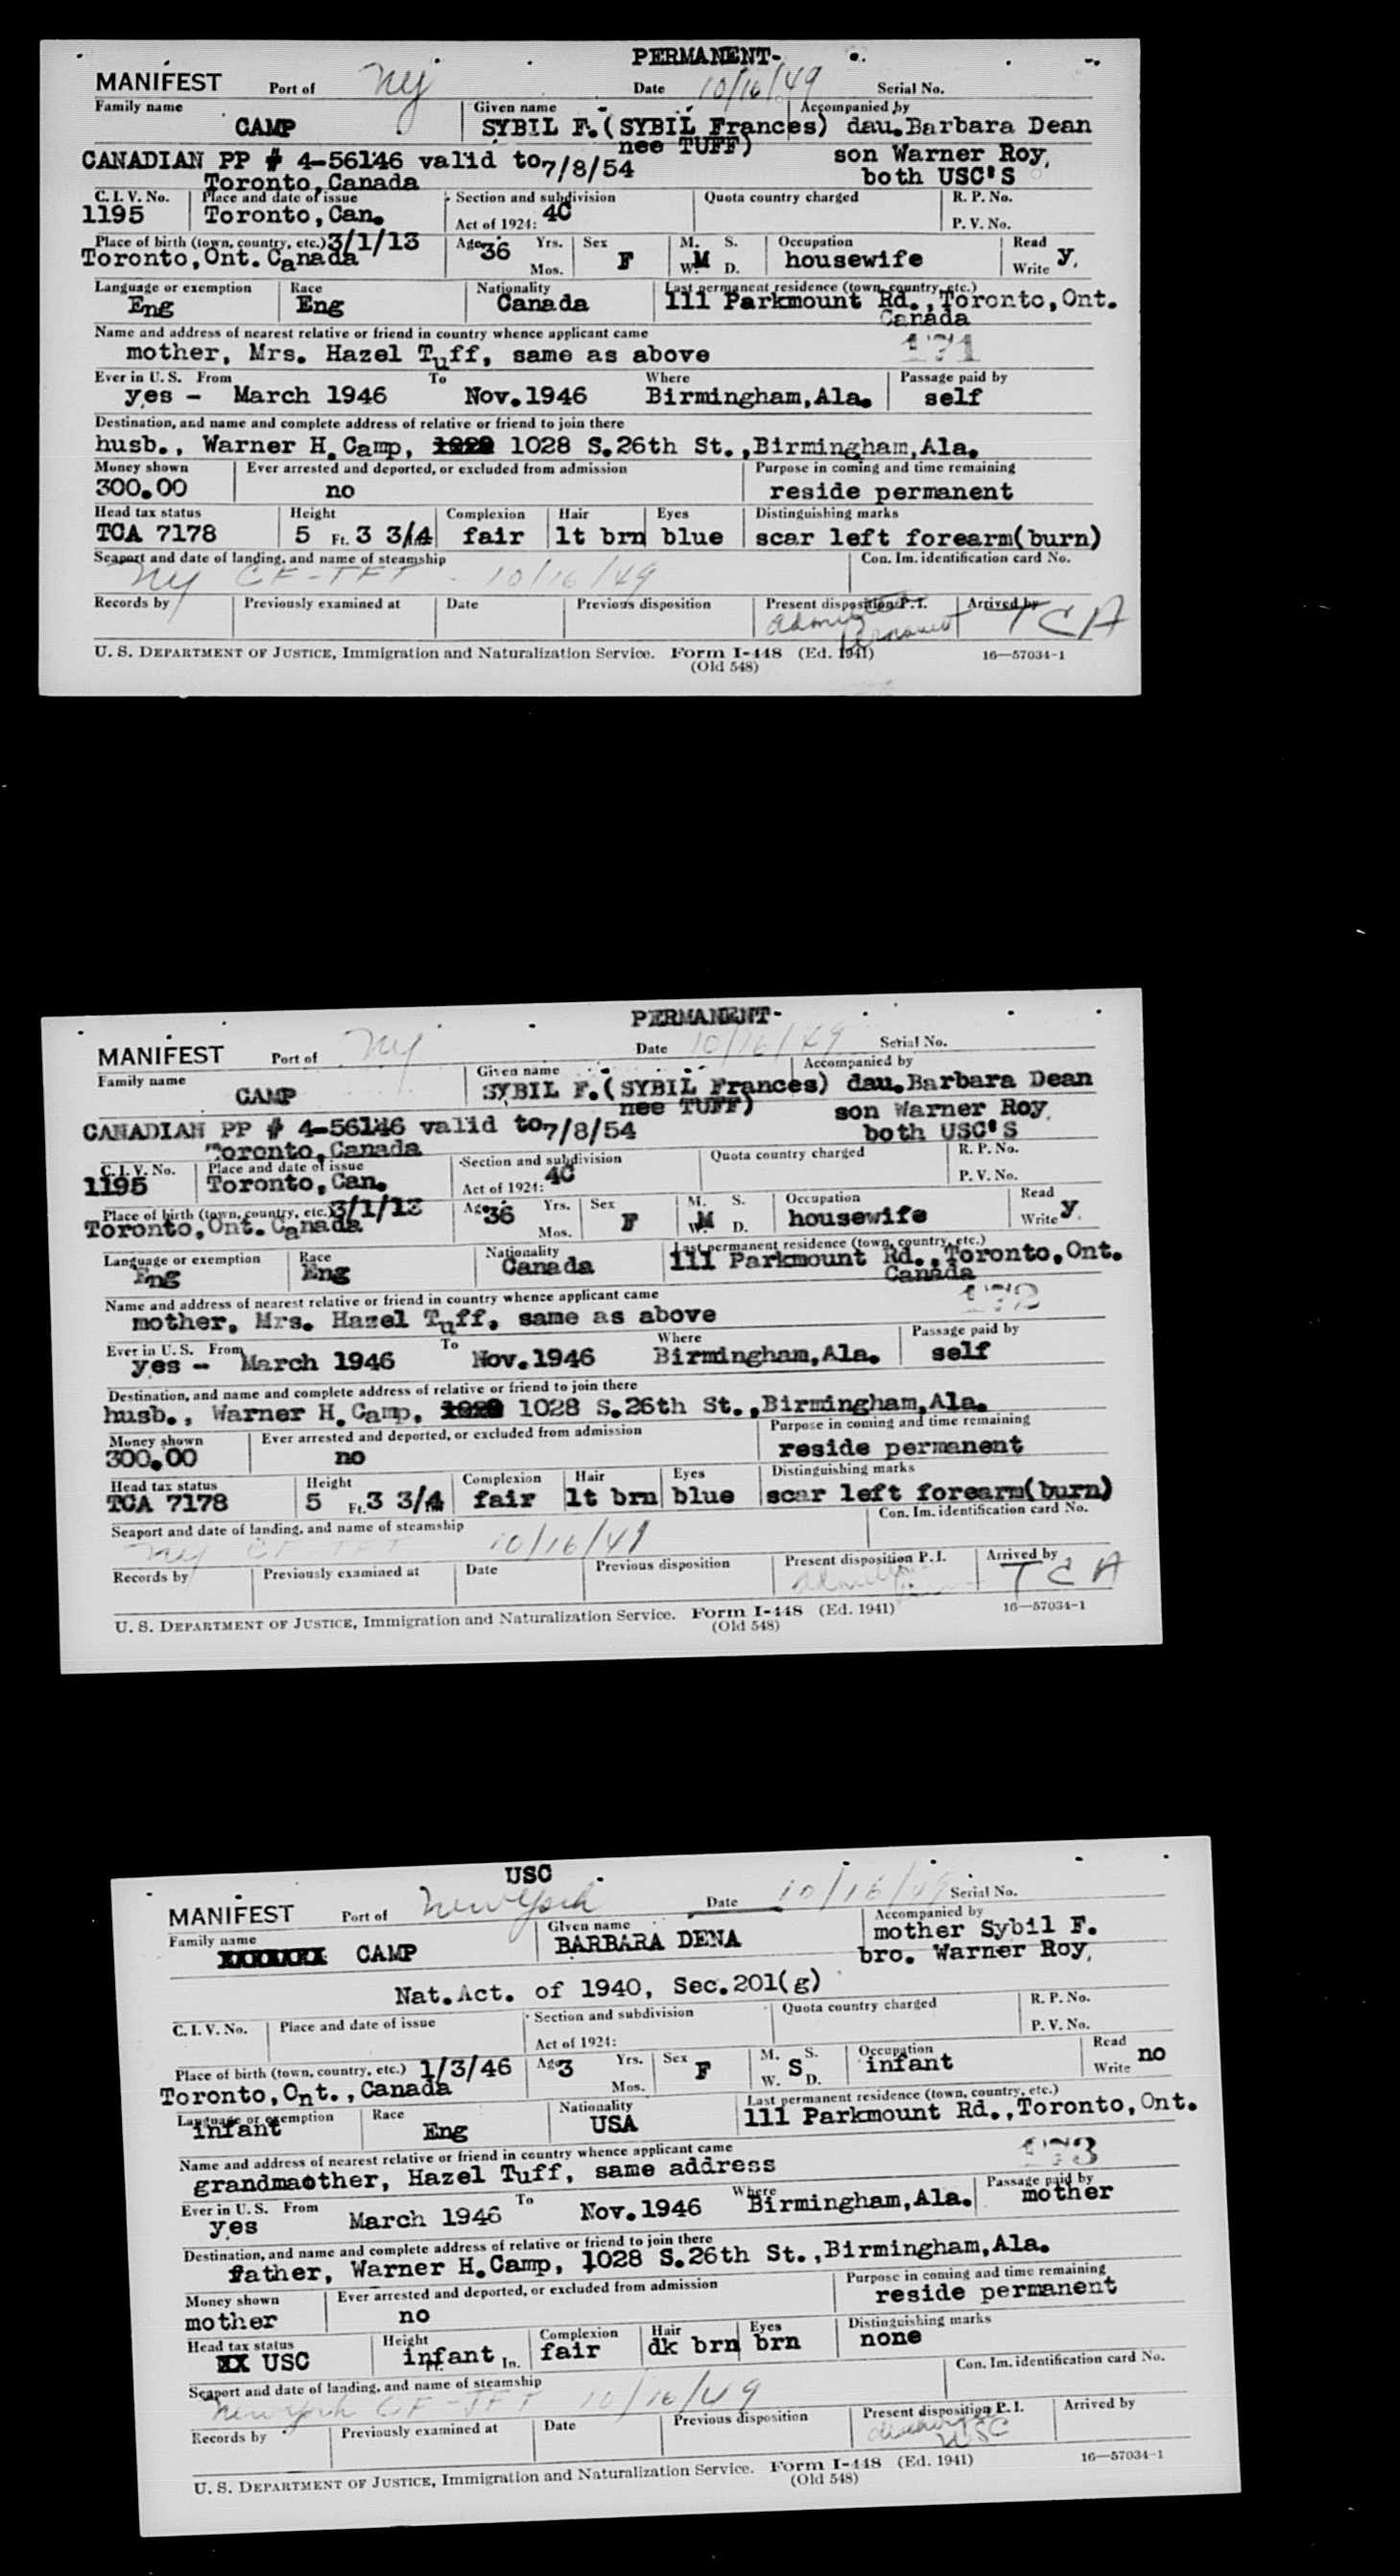 PERMANENT-
MANIFEST Port of Ny Date 10/16/49 Serial No.
Family name Given name Accompanied by
CAMP SYBIL F.(SYBIL Frances) dau.Barbara Dean
nee TUFF) son Warner Roy,
CANADIAN PP # 4-56146 valid to 7/8/54 both USC'S
Toronto,Canada
C. I. V. No. Place and date of issue Section and subdivision Quota country charged R. P. No.
1195 Toronto,Can. Act of 1924: 4C P. V. No.
Place of birth (town, country, etc.) 3/1/13 Age 36 Yrs. Sex M. S. Occupation Read
Toronto,Ont. Canada Mos. F W. M D. housewife Write y,
Language or exemption Race Nationality Last permanent residence (town, country, etc.)
Eng Eng Canada 111 Parkmount Rd.,Toronto,Ont.
Canada
Name and address of nearest relative or friend in country whence applicant came
mother, Mrs. Hazel Tuff, same as above 171
Ever in U. S. From To Where Passage paid by
yes - March 1946 Nov.1946 Birmingham,Ala. self
Destination, and name and complete address of relative or friend to join there
husb., Warner H.Camp, 1028 S.26th St.,Birmingham,Ala.
Money shown Ever arrested and deported, or excluded from admission Purpose in coming and time remaining
300.00 no reside permanent
Head tax status Height Complexion Hair Eyes Distinguishing marks
TCA 7178 5 Ft. 3 3/4 fair lt brn blue scar left forearm(burn)
Seaport and date of landing, and name of steamship Con. Im. identification card No.
Ny CF-TFT 10/16/49
Records by Previously examined at Date Previous disposition Present disposition P. I. Arrived by
admitted permanent TCA
U. S. DEPARTMENT OF JUSTICE, Immigration and Naturalization Service. Form I-448 (Ed. 1941) 16—57034-1
(Old 548)
PERMANENT-
MANIFEST Port of Ny Date 10/16/49 Serial No.
Family name Given name Accompanied by
CAMP SYBIL F.(SYBIL Frances) dau.Barbara Dean
nee TUFF) son Warner Roy,
CANADIAN PP # 4-56146 valid to 7/8/54 both USC'S
Toronto,Canada
C. I. V. No. Place and date of issue Section and subdivision Quota country charged R. P. No.
1195 Toronto,Can. Act of 1924: 4C P. V. No.
Place of birth (town, country, etc.) 3/1/13 Age 36 Yrs. Sex M. S. Occupation Read
Toronto,Ont. Canada Mos. F W. M D. housewife Write y.
Language or exemption Race Nationality Last permanent residence (town, country, etc.)
Eng Eng Canada 111 Parkmount Rd.,Toronto,Ont.
Canada
Name and address of nearest relative or friend in country whence applicant came
mother, Mrs. Hazel Tuff, same as above 172
Ever in U. S. From To Where Passage paid by
yes - March 1946 Nov.1946 Birmingham,Ala. self
Destination, and name and complete address of relative or friend to join there
husb., Warner H.Camp, 1028 S.26th St.,Birmingham,Ala.
Money shown Ever arrested and deported, or excluded from admission Purpose in coming and time remaining
300.00 no reside permanent
Head tax status Height Complexion Hair Eyes Distinguishing marks
TCA 7178 5 Ft. 3 3/4 fair lt brn blue scar left forearm(burn)
Seaport and date of landing, and name of steamship Con. Im. identification card No.
Ny CF TFT 10/16/49
Records by Previously examined at Date Previous disposition Present disposition P. I. Arrived by
admitted TCA
U. S. DEPARTMENT OF JUSTICE, Immigration and Naturalization Service. Form I-448 (Ed. 1941) 16—57034-1
(Old 548)
USC
MANIFEST Port of New York Date 10/16/49 Serial No.
Family name Given name Accompanied by
CAMP BARBARA DENA mother Sybil F.
bro. Warner Roy,
Nat.Act. of 1940, Sec.201(g)
C. I. V. No. Place and date of issue Section and subdivision Quota country charged R. P. No.
Act of 1924: P. V. No.
Place of birth (town, country, etc.) 1/3/46 Age 3 Yrs. Sex M. S. Occupation Read
Toronto,Ont.,Canada Mos. F W. S D. infant Write no
Language or exemption Race Nationality Last permanent residence (town, country, etc.)
infant Eng USA 111 Parkmount Rd.,Toronto,Ont.
Name and address of nearest relative or friend in country whence applicant came
grandmaother, Hazel Tuff, same address 173
Ever in U. S. From To Where Passage paid by
yes March 1946 Nov.1946 Birmingham,Ala. mother
Destination, and name and complete address of relative or friend to join there
father, Warner H.Camp, 1028 S.26th St.,Birmingham,Ala.
Money shown Ever arrested and deported, or excluded from admission Purpose in coming and time remaining
mother no reside permanent
Head tax status Height Complexion Hair Eyes Distinguishing marks
XX USC infant Ft. In. fair dk brn brn none
Seaport and date of landing, and name of steamship Con. Im. identification card No.
New York CF-TFT 10/16/49
Records by Previously examined at Date Previous disposition Present disposition P. I. Arrived by
USC
U. S. DEPARTMENT OF JUSTICE, Immigration and Naturalization Service. Form I-448 (Ed. 1941) 16—57034-1
(Old 548)